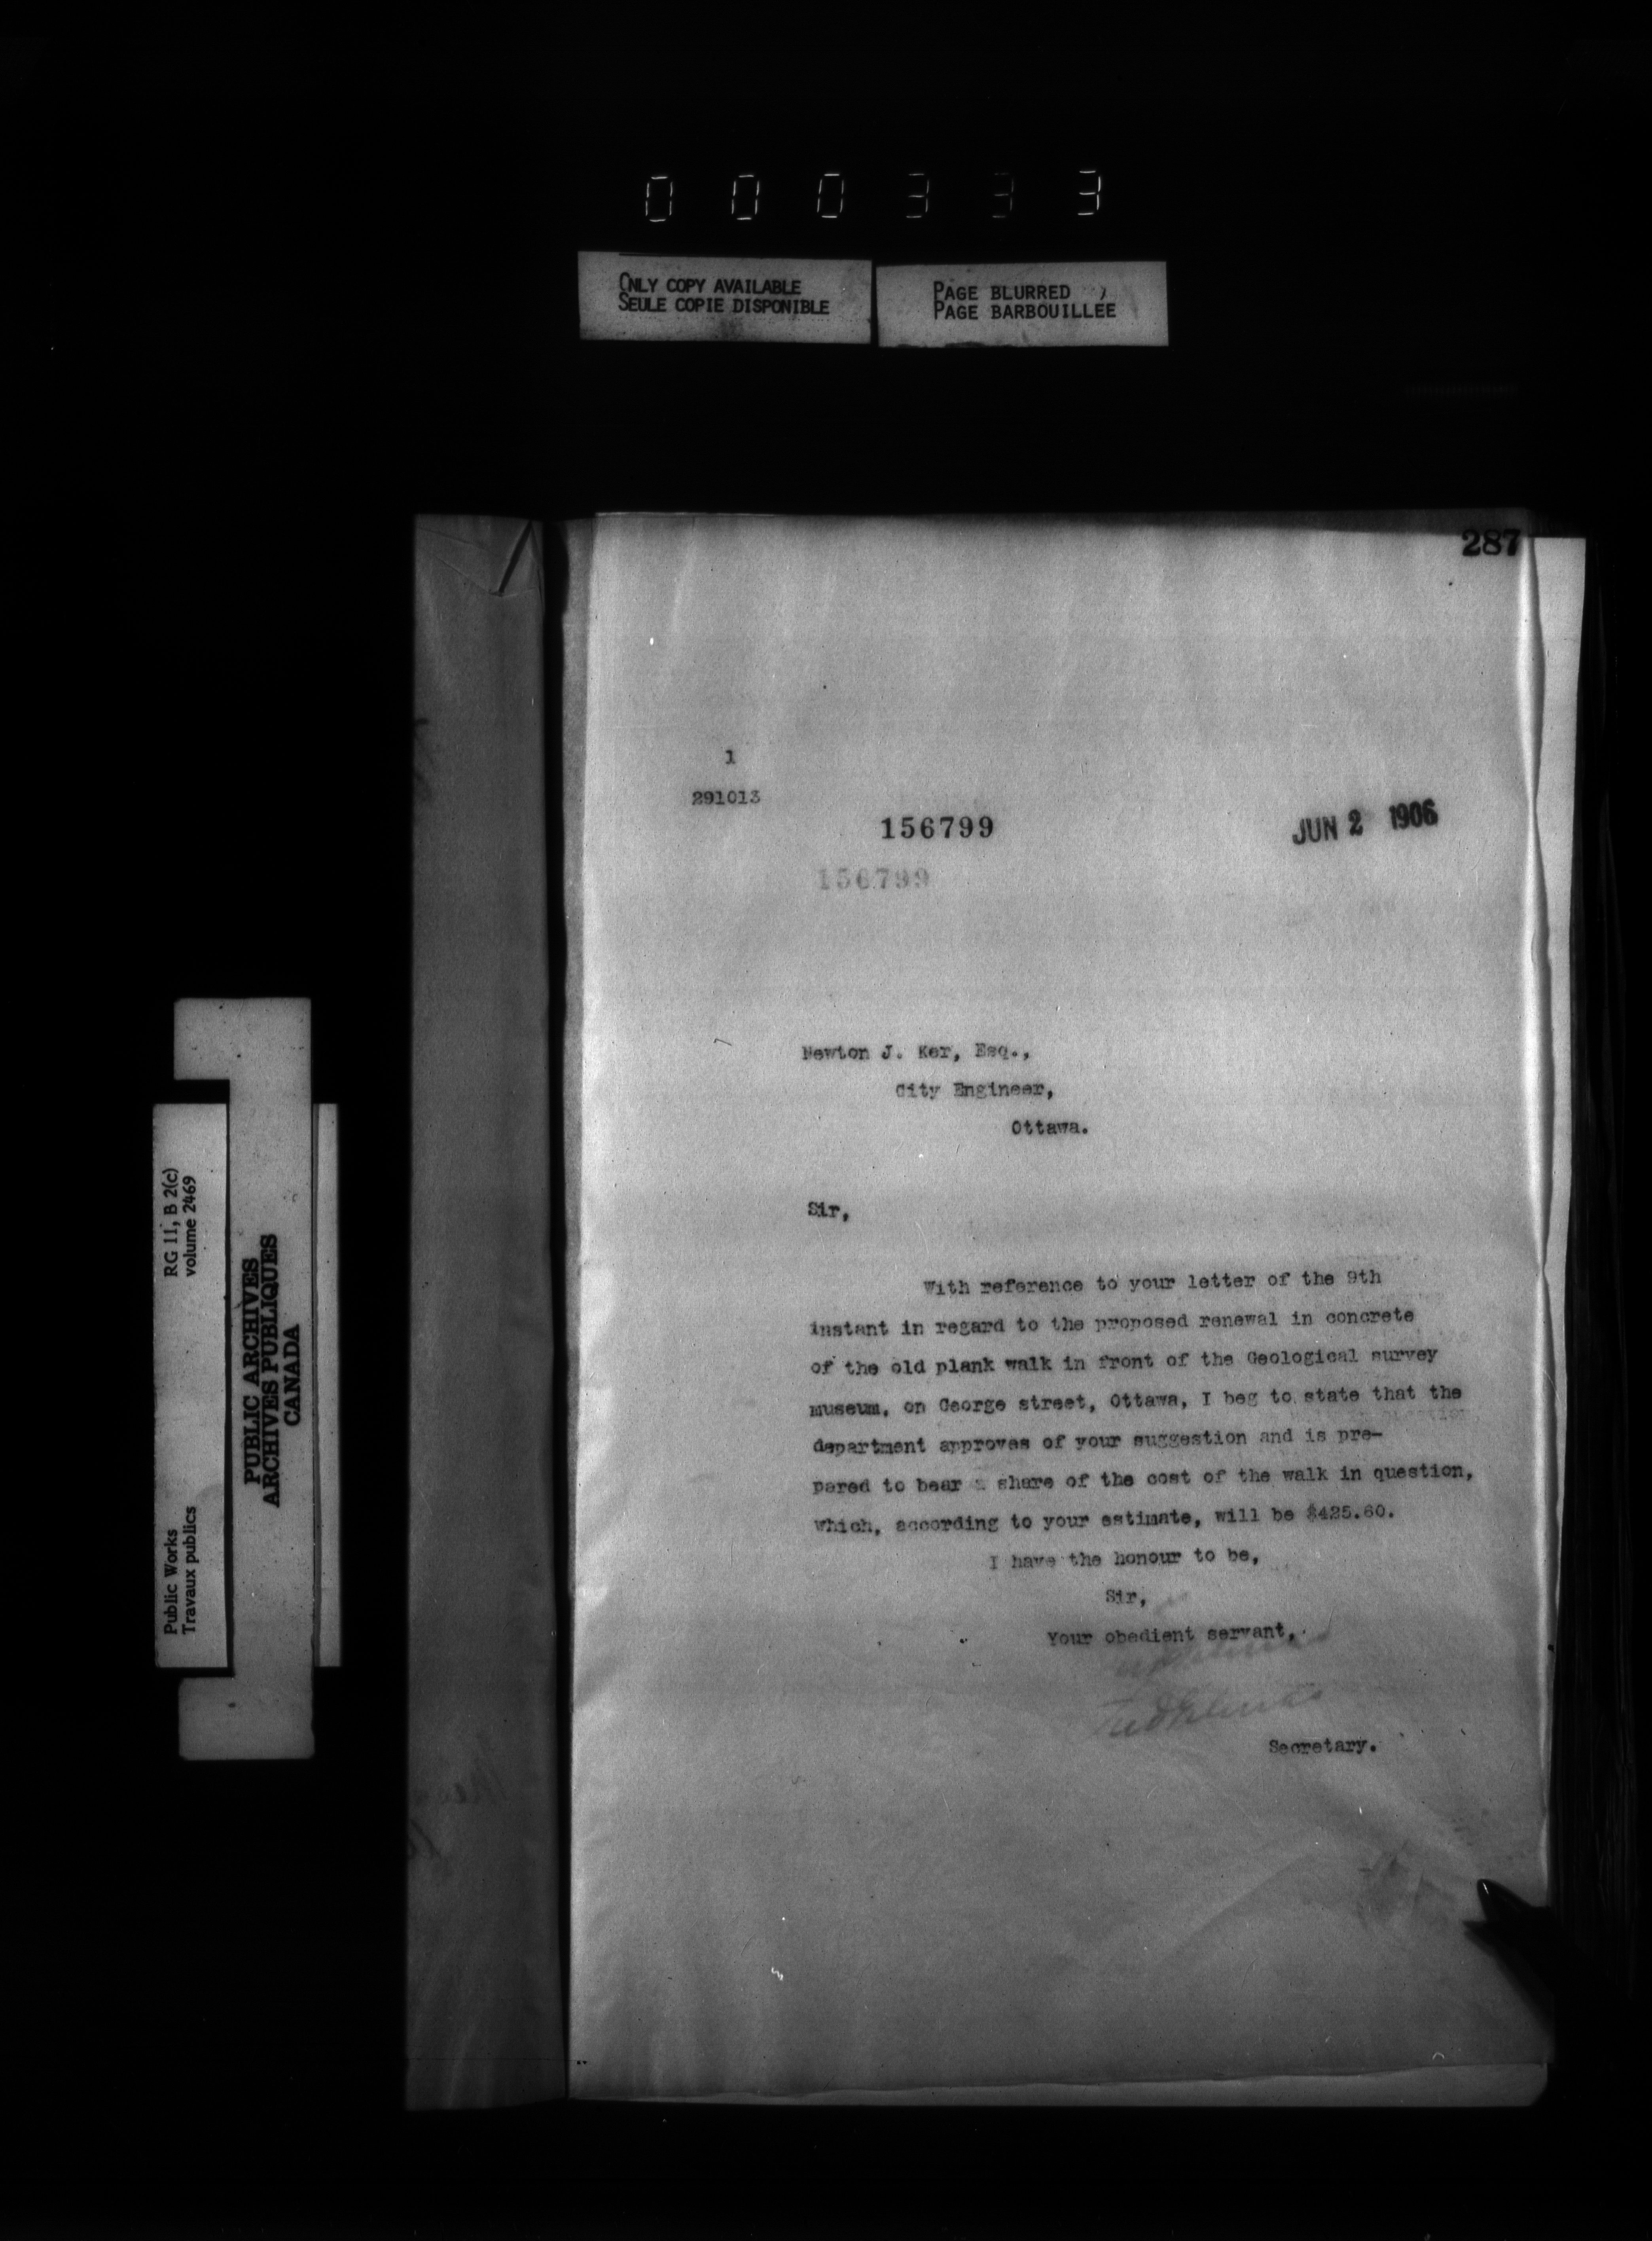 000333
ONLY COPY AVAILABLE
SEULE COPIE DISPONIBLE
PAGE BLURRED
PAGE BARBOUILLEE
287
1
291013
156799
JUN 2 1906
156799
Newton J. Ker, Esq.,
City Engineer,
Ottawa.
Sir,
With reference to your letter of the 9th
instant in regard to the proposed renewal in concrete
of the old plank walk in front of the Geological survey
museum, on George street, Ottawa, I beg to state that the
department approves of your suggestion and is pre-
pared to bear a share of the cost of the walk in question,
which, according to your estimate, will be $425.60.
I have the honour to be,
Sir,
Your obedient servant,
Secretary.
RG 11, B 2(c)
volume 2469
PUBLIC ARCHIVES
ARCHIVES PUBLIQUES
CANADA
Public Works
Travaux publics